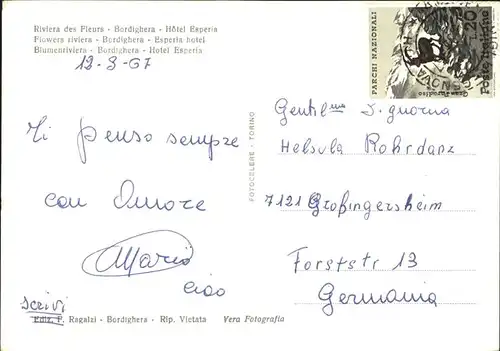 Riviera des Fleurs - Bordighera - Hôtel Esperia
Flowers riviera - Bordighera - Esperia hotel
Blumenriviera - Bordighera - Hotel Esperia
12-3-67
Ti penso sempre
con Amore
Mario
ciao
scrivi
Ediz. F. Ragalzi - Bordighera - Rip. Vietata Vera Fotografia
FOTOCELERE - TORINO
PARCHI NAZIONALI
Gran Paradiso
Poste Italiane
Gentil
Helsula Rohrdanz
7121 Großingersheim
Forststr 13
Germania